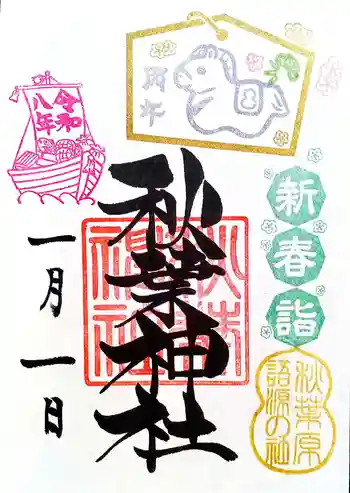 令和
八年
丙午
新春詣
秋葉神社
一月一日
秋葉原
語源の社